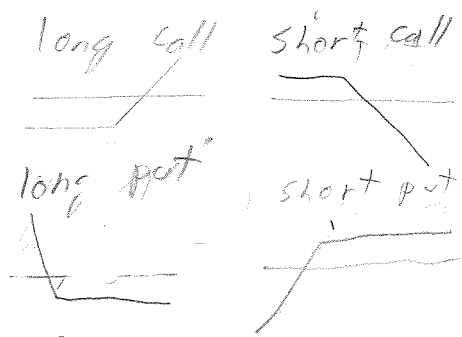 long call
short call
long put
short put